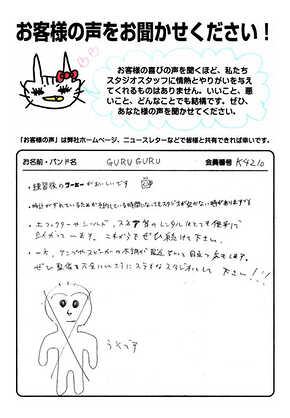 お客様の声をお聞かせください！
お客様の喜びの声を聞くほど、私たち
スタジオスタッフに情熱とやりがいを与え
てくれるものはありません。いいこと、悪
いこと、どんなことでも結構です。ぜひ、
あなた様の声を聞かせてください。
「お客様の声」は弊社ホームページ、ニュースレターなどで皆様と共有できれば幸いです。
お名前・バンド名 GURU GURU 会員番号 K4210
・練習後のコーヒーがおいしいです
・時計がずれているため予約している時間になってもスタジオが空かない時があります
・エフェクターやシールド、スネア等のレンタルはとても便利で
立ています。これからもぜひ続けて下さい。
・一方、アンプやスピーカーの不調が最近 目立って来てます。
ぜひ整備を万全にして ステキなスタジオにして下さい!!!
うそです